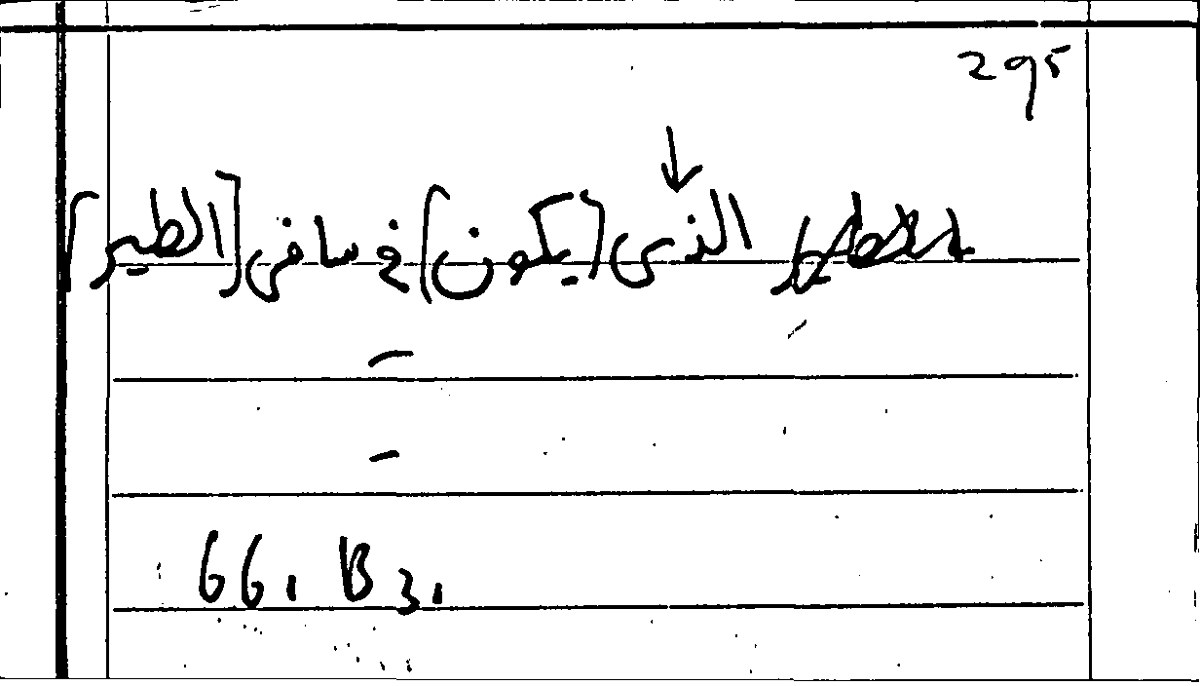 295
الذى [يكون] فى ساقى [الطير]
66. B 3.